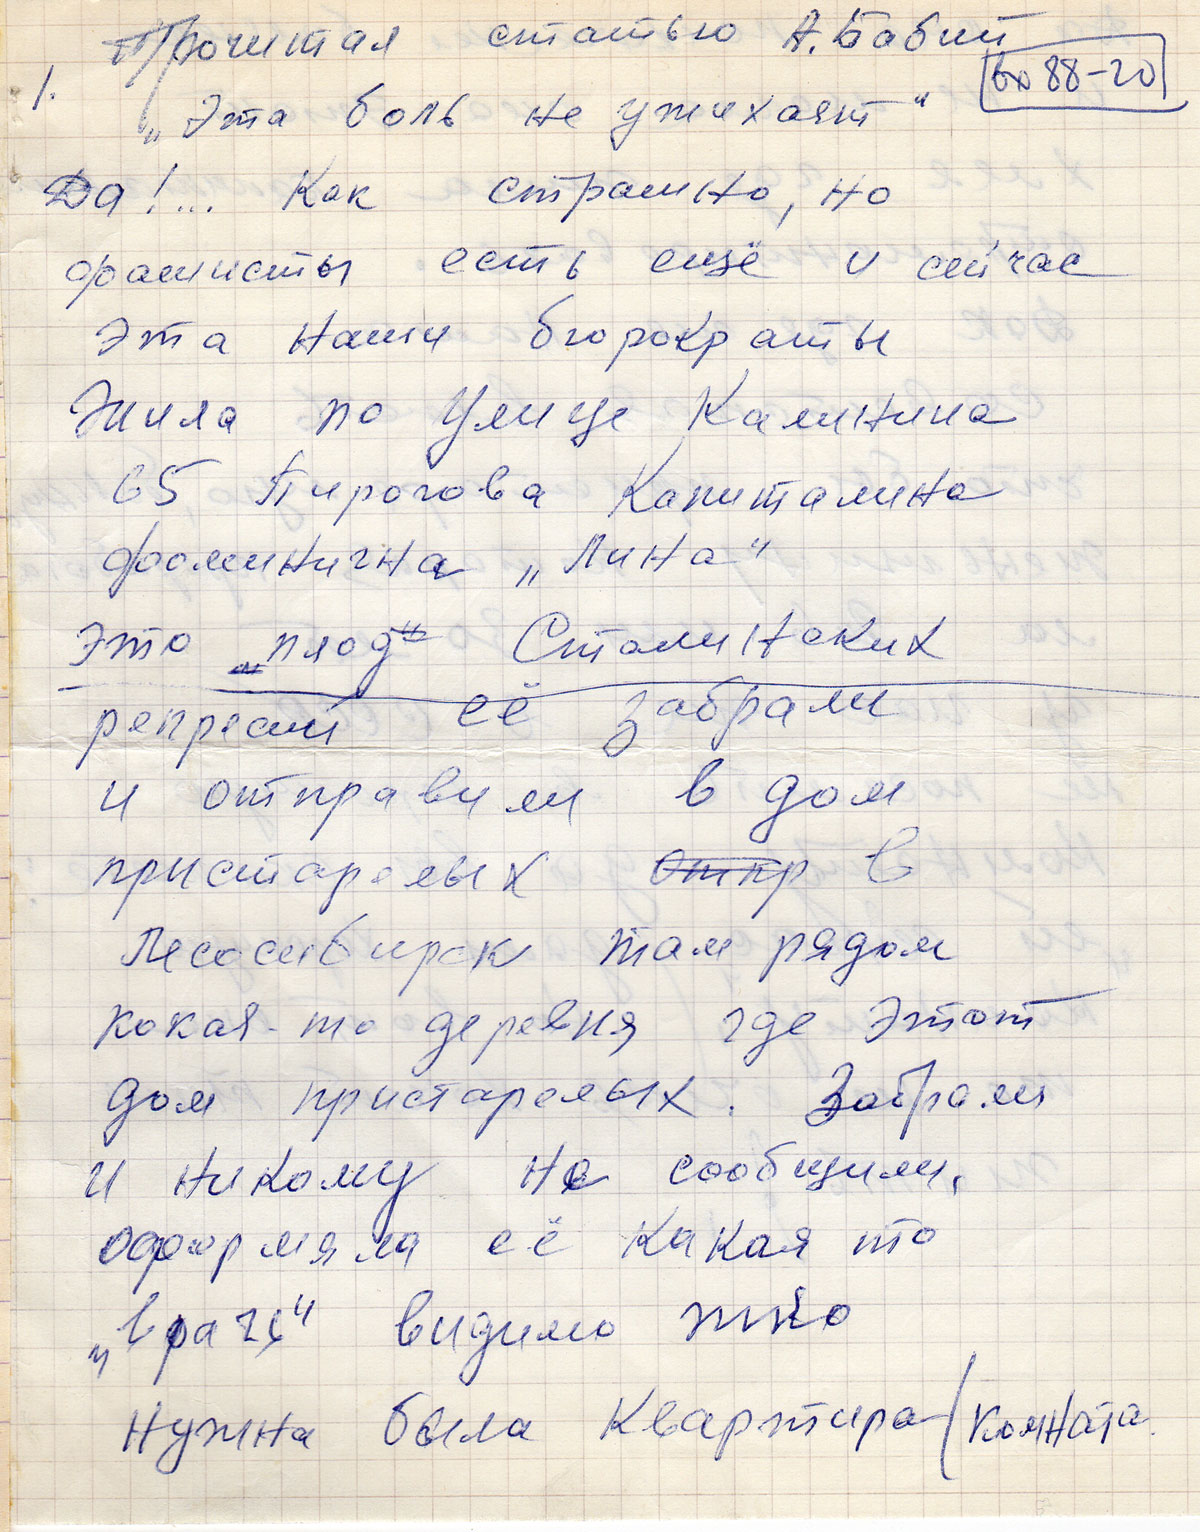 Прочитал статью А. Бабий
вх 88-20
1.
„Эта боль не утихает“
Да!... Как страшно, но
фашисты есть ещё и сейчас
Эта наши бюрократы
Жила по улице Калинина
65 Пирогова Капиталина
Фоминична „Лина“
Это „плод“ Сталинских
репресий её забрали
и отправили в дом
пристарелых отпр в
Лесосибирск там рядом
кокая-то деревня где этот
дом пристарелых. Забрали
и никому не сообщили,
оформляла её какая то
„врач“ видимо
нужна была квартира (комната